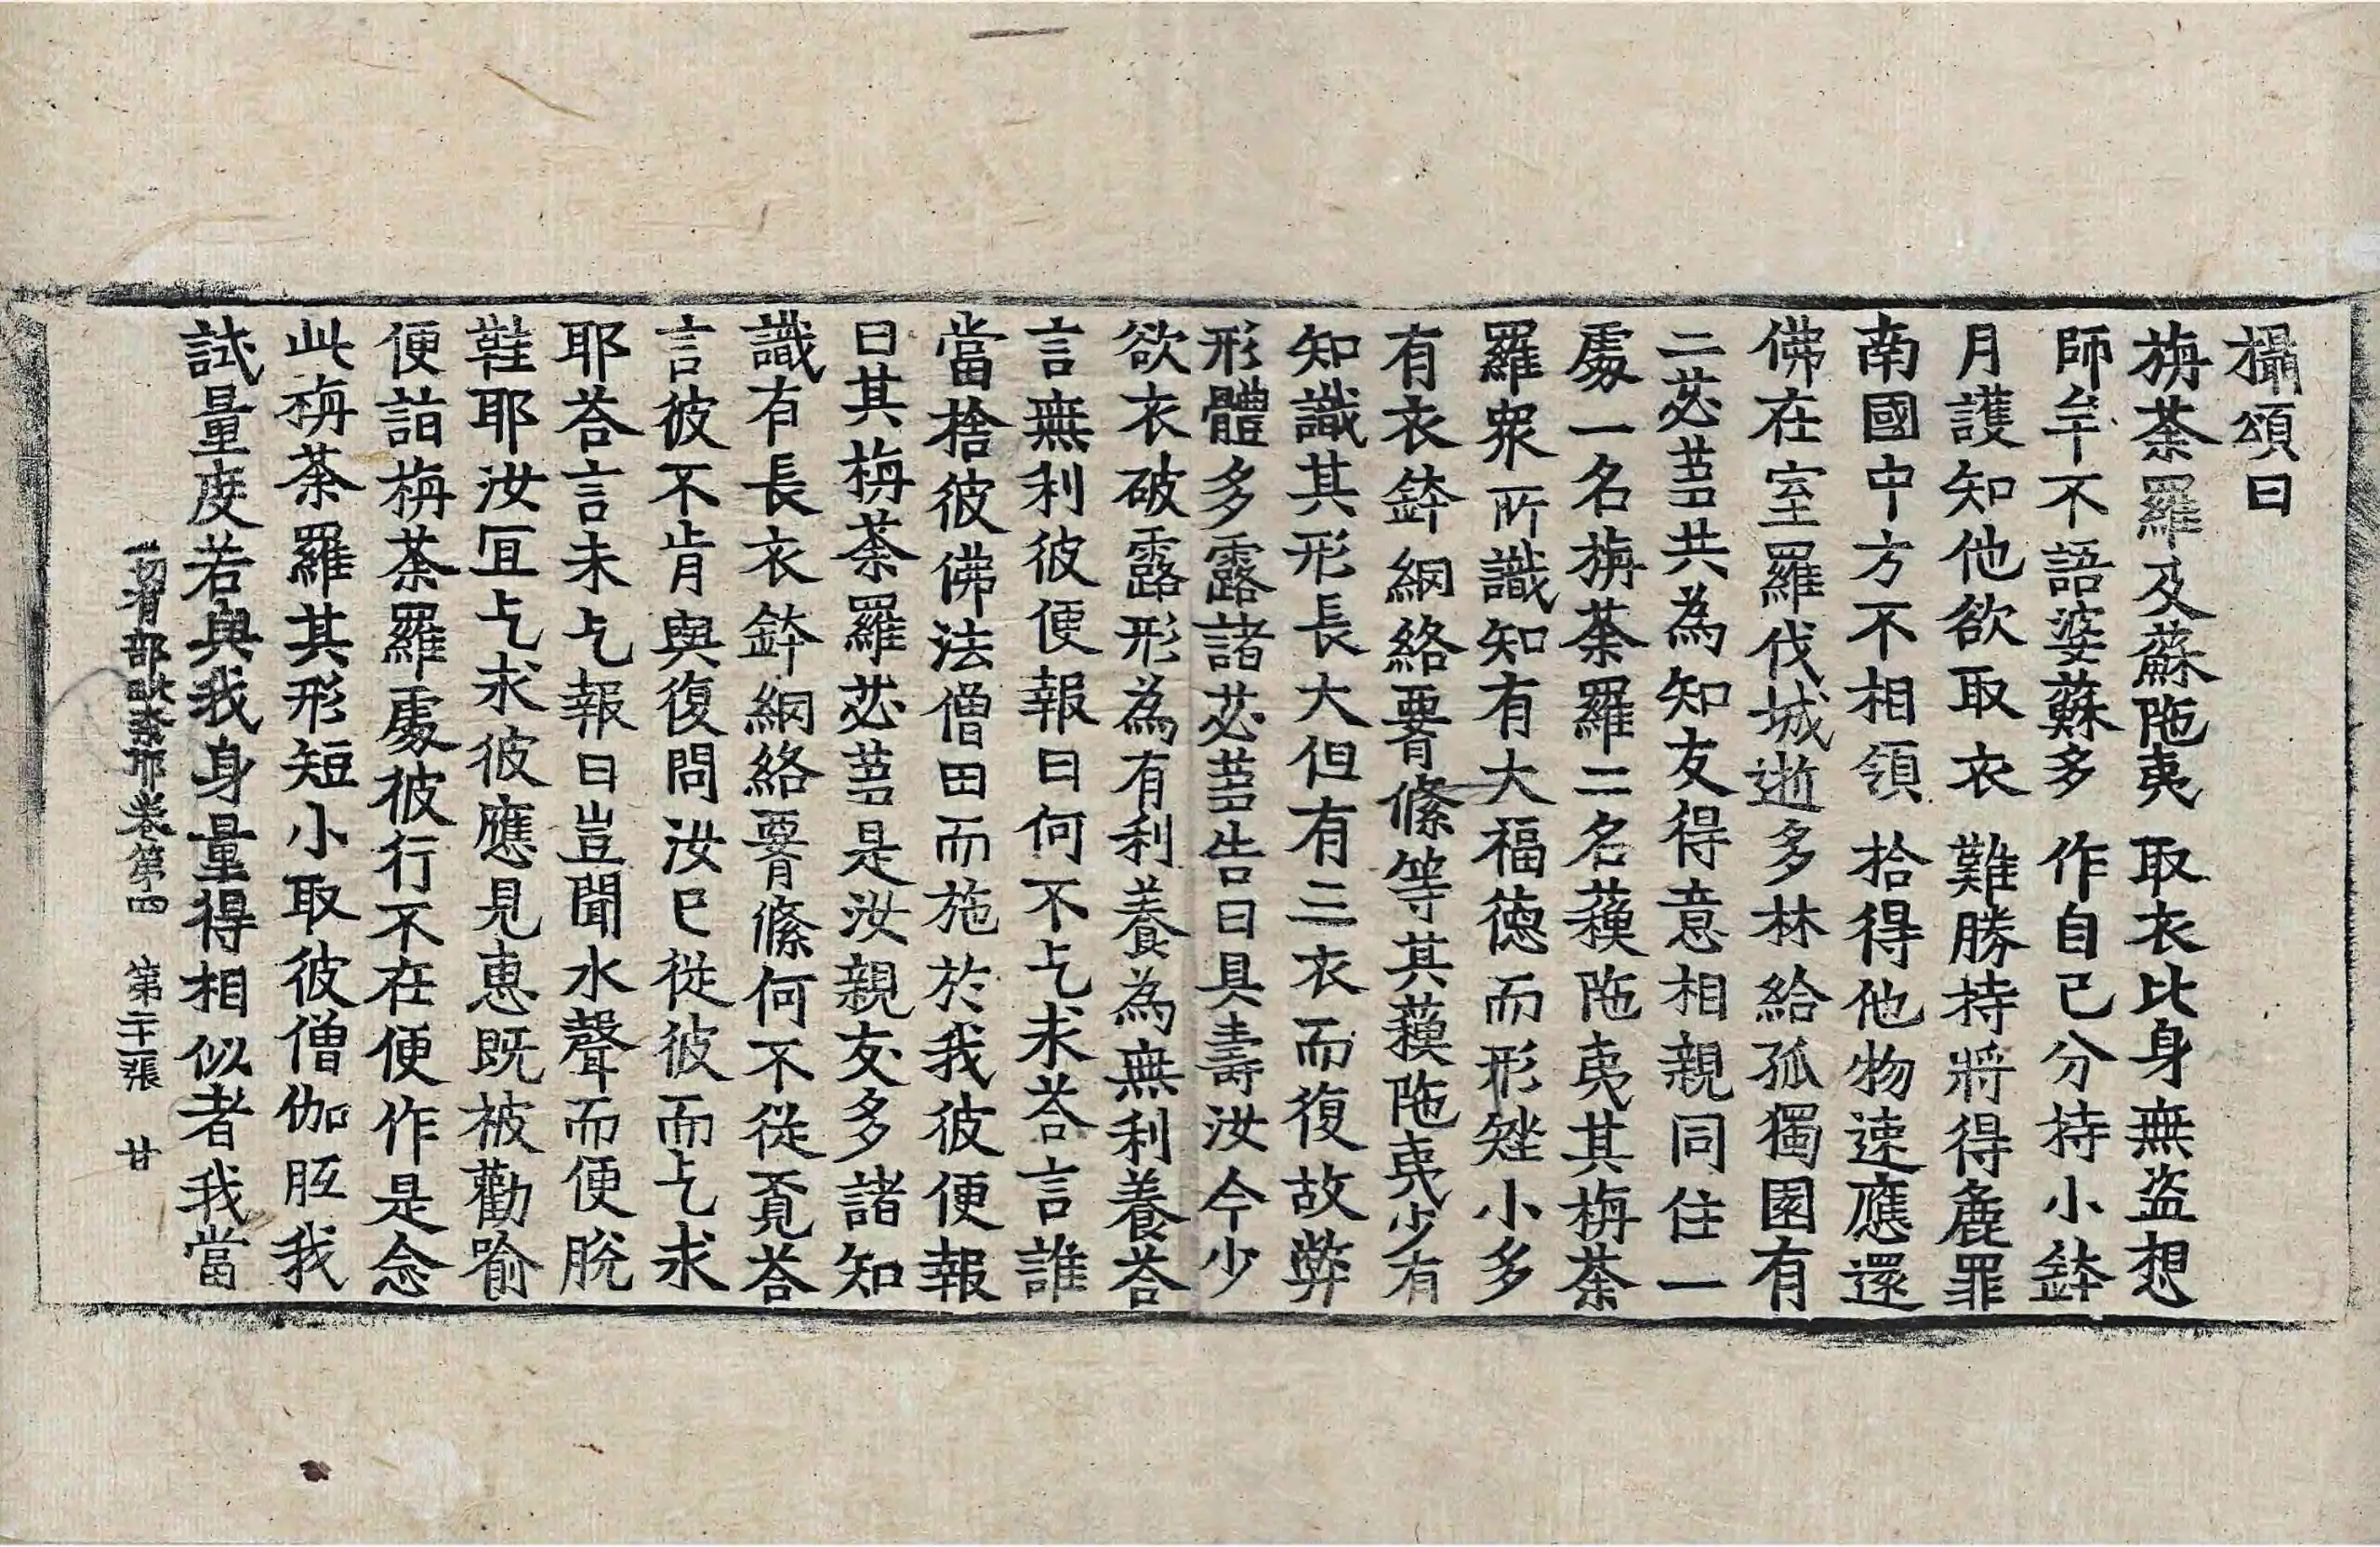 攝頌曰
旃荼羅及蘇陁夷 取衣比身無盜想
師牟不語婆蘇多 作自己分持小鉢
月護知他欲取衣 難勝持將得麁罪
南國中方不相領 拾得他物速應還
佛在室羅伐城逝多林給孤獨園有
二苾芻共為知友得意相親同住一
處一名旃荼羅二名蘓陁夷其栴荼
羅衆所識知有大福德而形矬小多
有衣鉢網絡𦝫絛等其蘓陁夷少有
知識其形長大但有三衣而復故弊
形體多露諸苾芻告曰具壽汝今少
欲衣破露形為有利養為無利養荅
言無利彼便報曰何不乞求荅言誰
當捨彼佛法僧田而施於我彼便報
曰其栴荼羅苾芻是汝親友多諸知
識有長衣鉢網絡𦝫絛何不從覔荅
言彼不肯與復問汝巳從彼而乞求
耶荅言未乞報曰豈聞水聲而便脫
鞋耶汝冝乞求彼應見惠既被勸喻
便詣栴荼羅處彼行不在便作是念
此栴荼羅其形短小取彼僧伽胝我
試量度若與我身量得相似者我當
一切有部毗奈耶卷第四 第二十張 甘